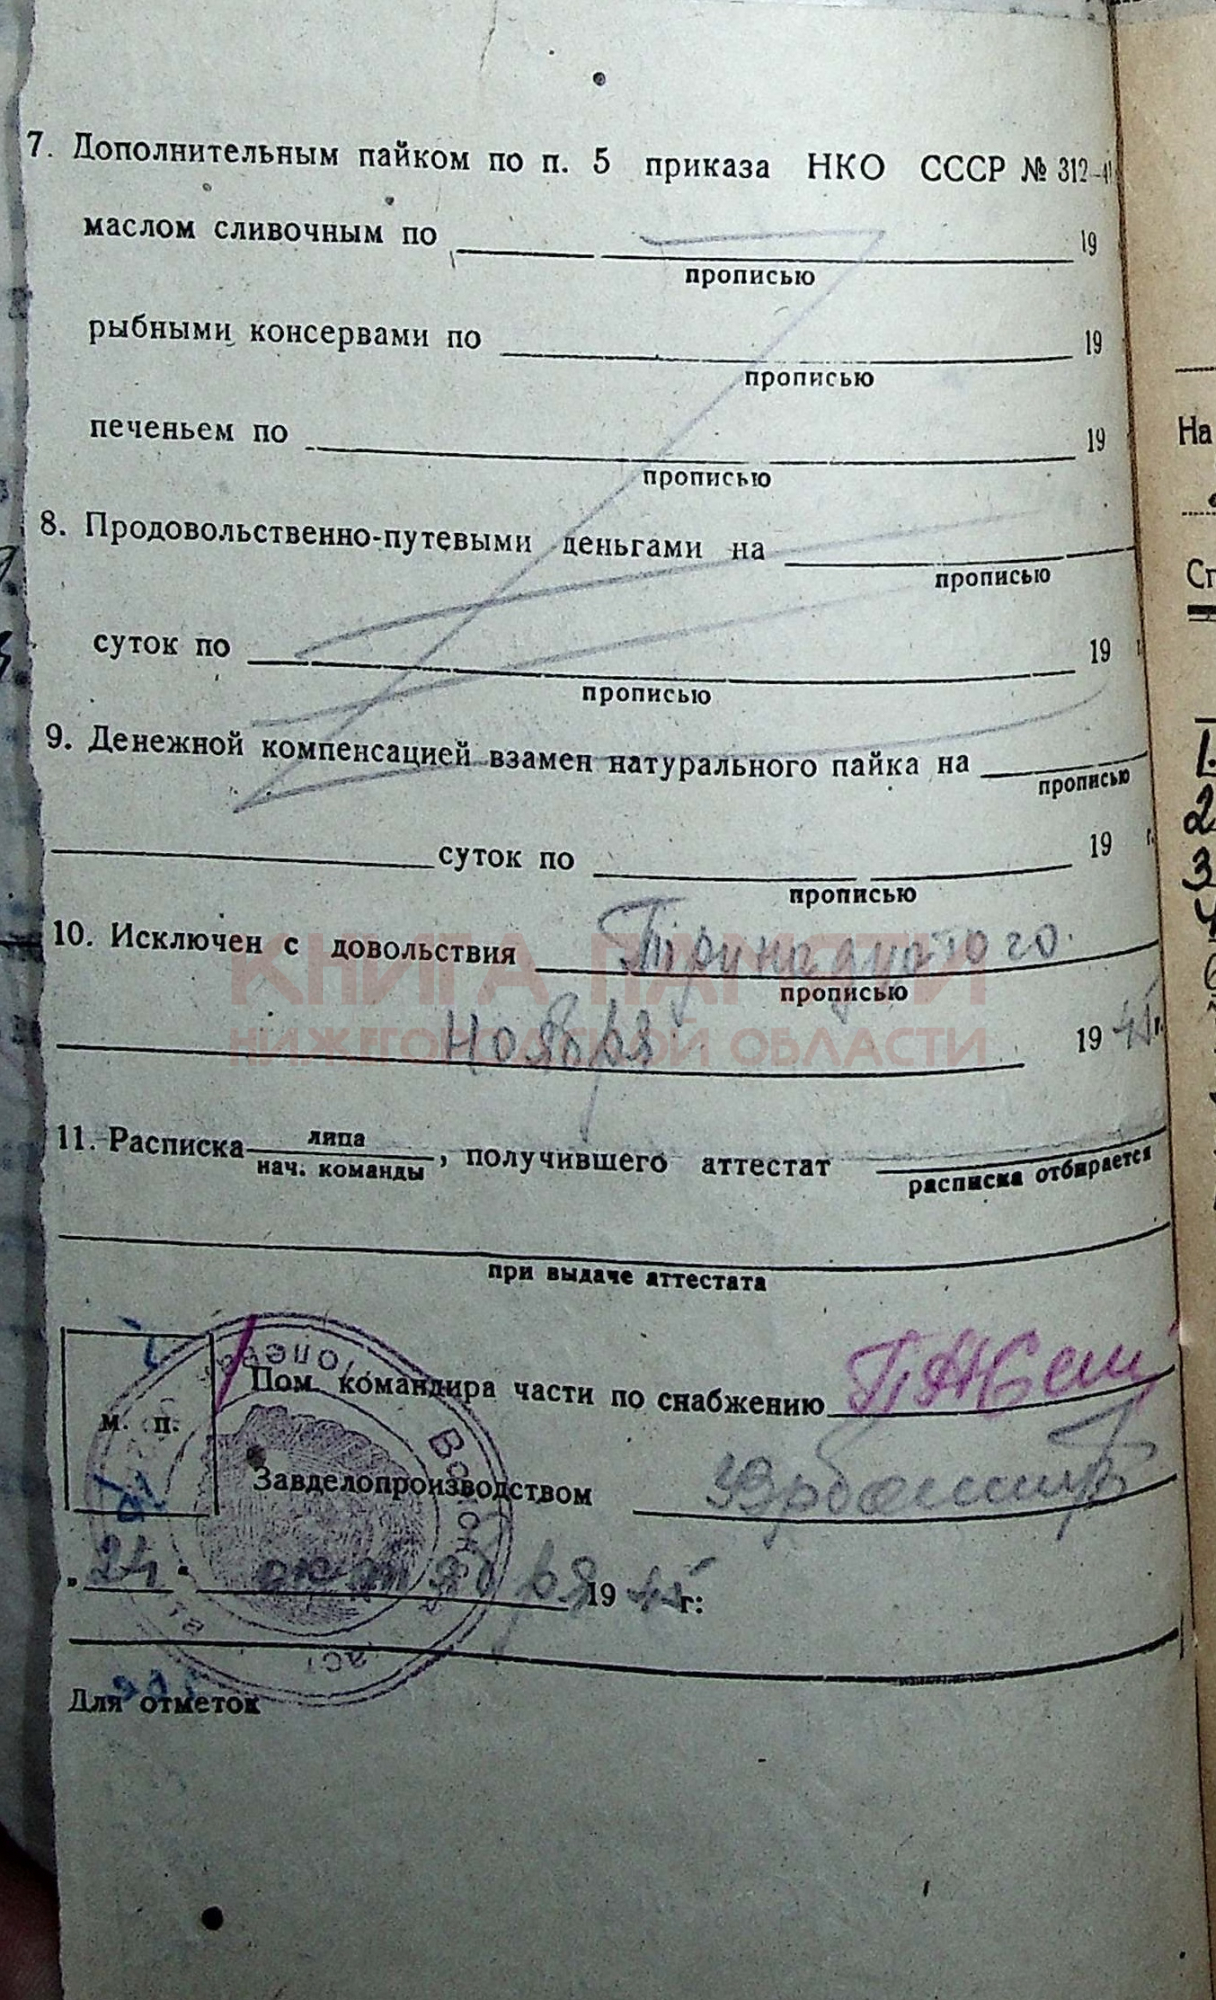 7. Дополнительным пайком по п. 5 приказа НКО СССР № 312-41
маслом сливочным по 19
прописью
рыбными консервами по 19
прописью
печеньем по 19
прописью
8. Продовольственно-путевыми деньгами на
прописью
суток по 19
прописью
9. Денежной компенсацией взамен натурального пайка на
прописью
суток по 19 г.
прописью
10. Исключен с довольствия Тринадцатого
прописью
КНИГА ПАМЯТИ
НИЖЕГОРОДСКОЙ ОБЛАСТИ
Ноября 1945 г.
11. Расписка лица
нач. команды, получившего аттестат
расписка отбирается
при выдаче аттестата
Пом. командира части по снабжению
м. п.
Завделопроизводством
24 октября 1945 г:
Для отметок
На
1.
2
3
4